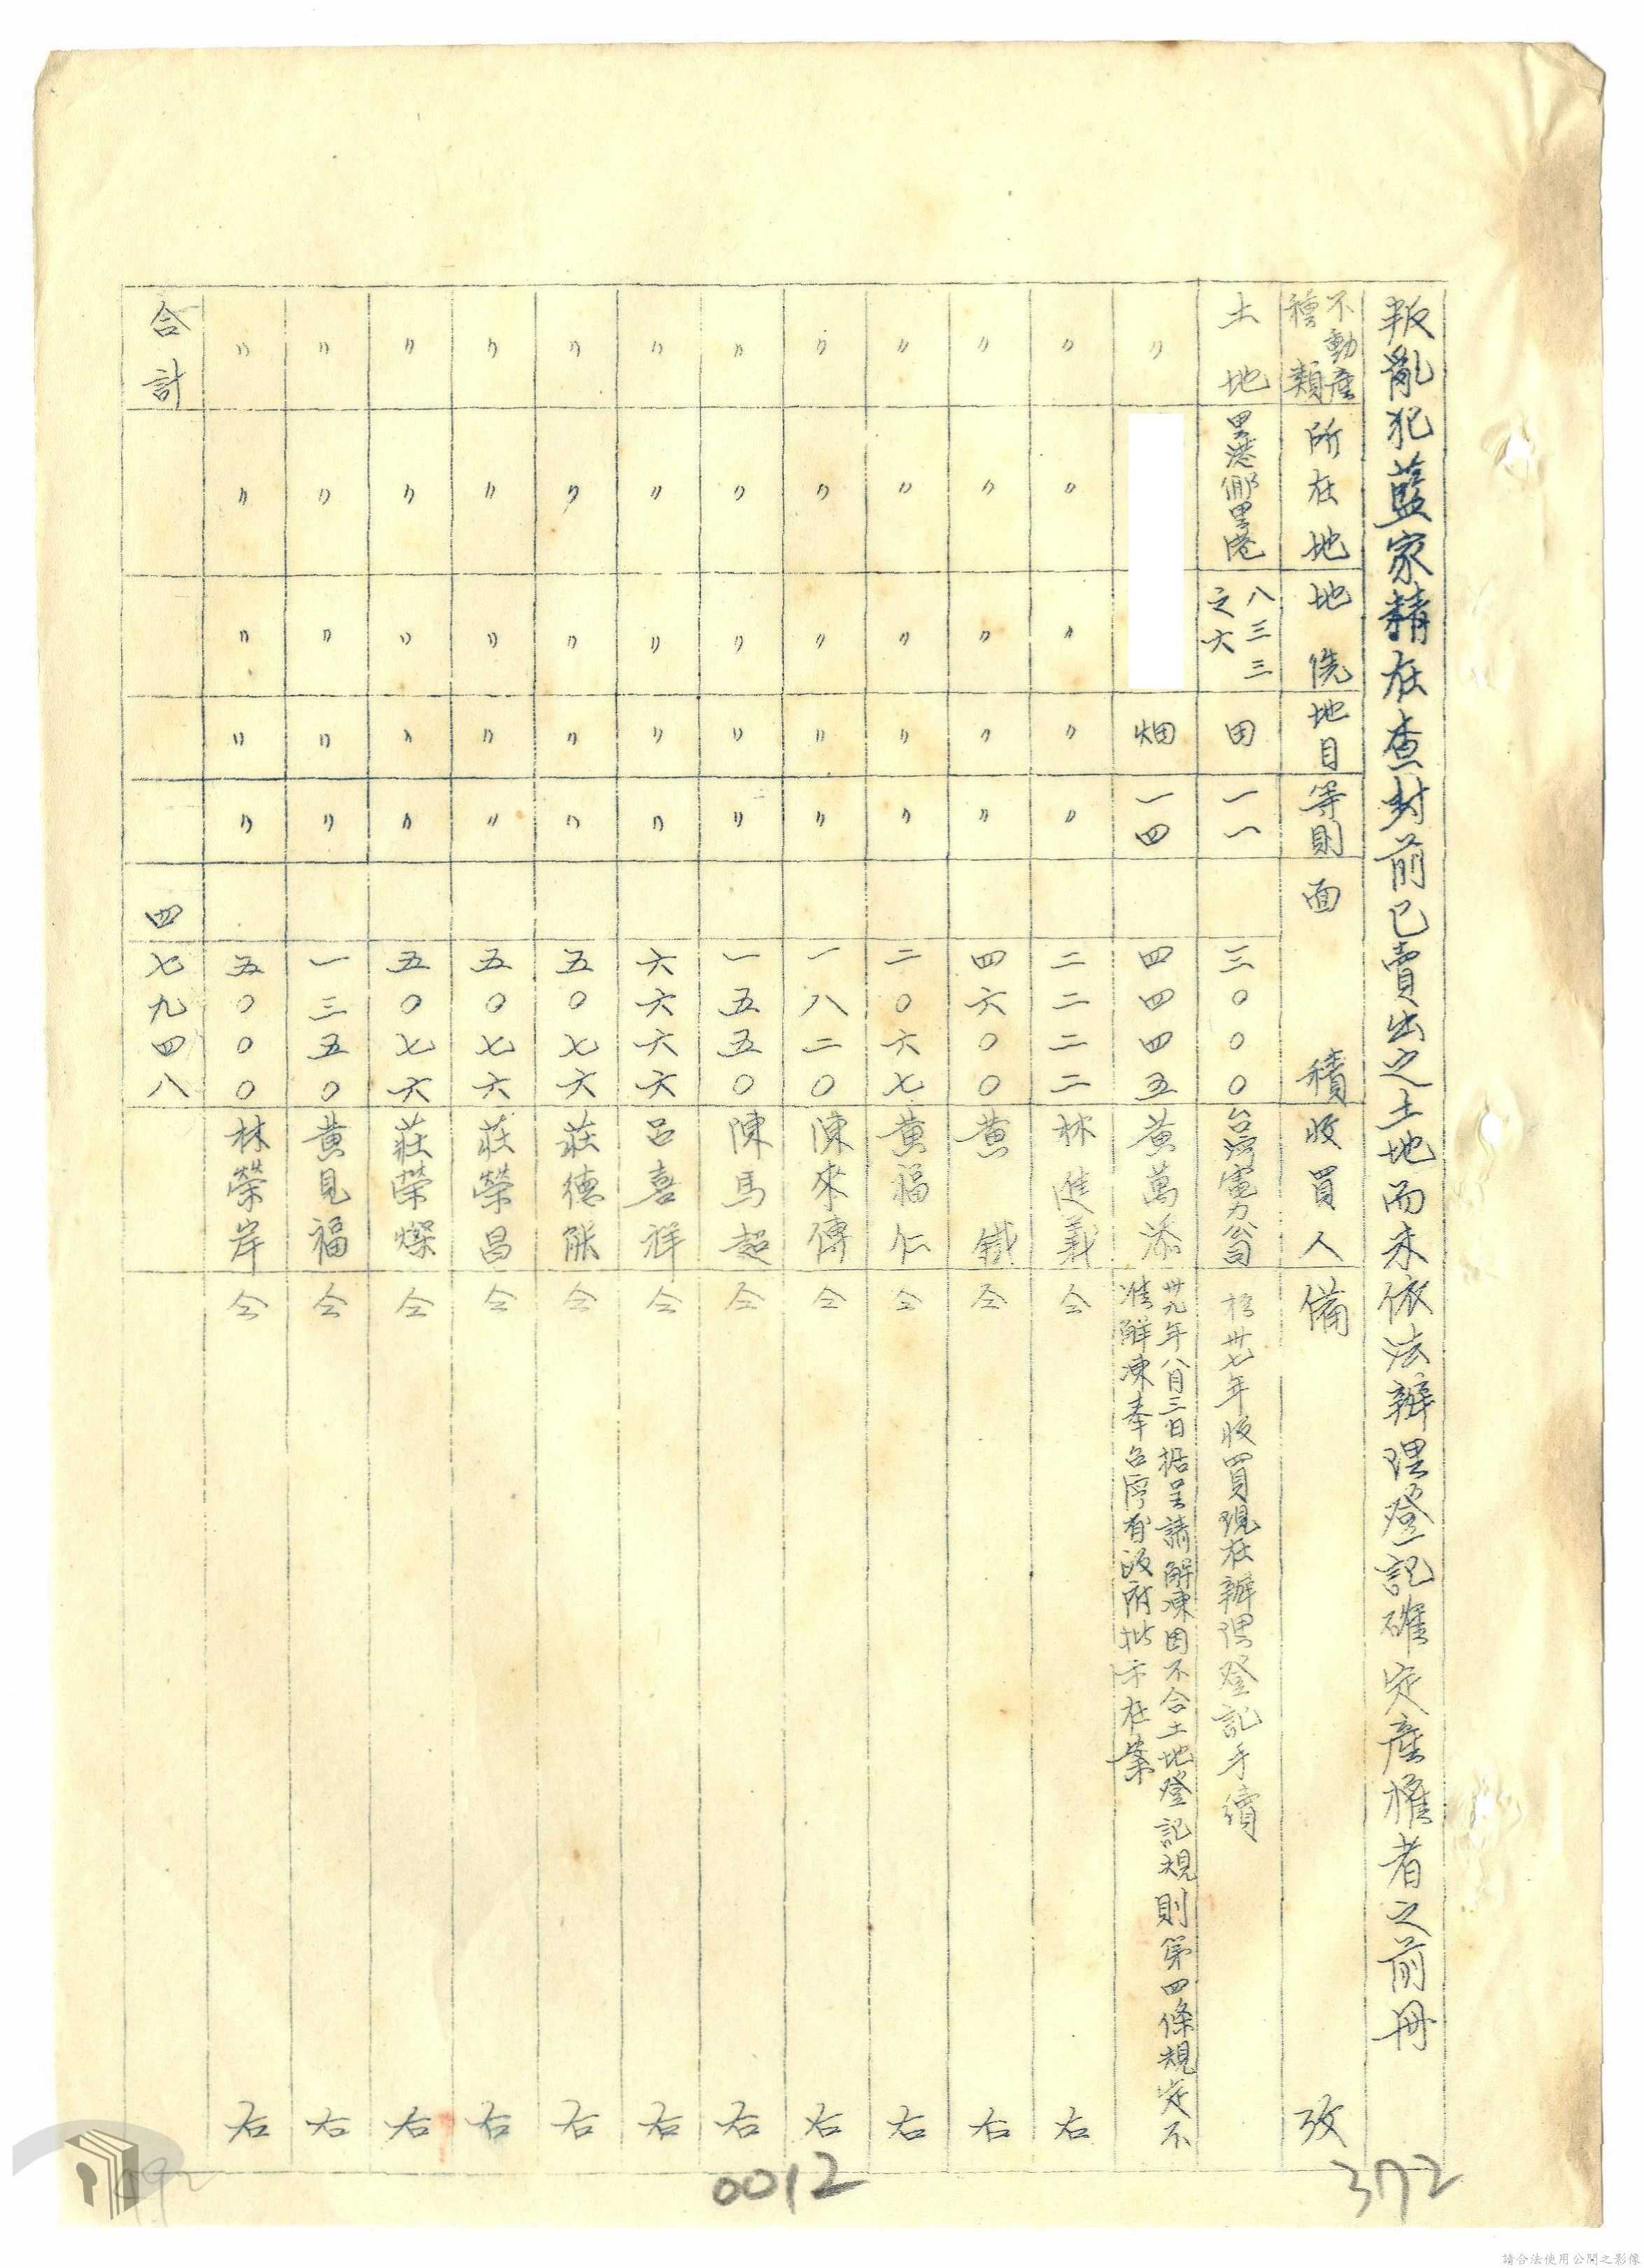 叛亂犯藍家精在查封前已賣出之土地而未依法辦理登記確定產權者之前册
不動產種類 所在地 地 地目 等則 面積 收買人 備攷
土地 里港鄉里港 八三三之六 田 一一 三〇〇〇 台灣電力公司 於卅七年收買現在辦理登記手續
〃 畑 一四 四四四五 黃萬添 卅九年八月三日据呈請解凍因不合土地登記規則第四條規定不
准解凍奉台灣省政府批示在案
〃 〃 〃 〃 〃 二二二二 林進義 仝右
〃 〃 〃 〃 〃 四六〇〇 黃鐵 仝右
〃 〃 〃 〃 〃 二〇六七 黃福仁 仝右
〃 〃 〃 〃 〃 一八二〇 陳來傳 仝右
〃 〃 〃 〃 〃 一五五〇 陳馬超 仝右
〃 〃 〃 〃 〃 六六六六 呂喜祥 仝右
〃 〃 〃 〃 〃 五〇七六 莊德能 仝右
〃 〃 〃 〃 〃 五〇七六 莊榮昌 仝右
〃 〃 〃 〃 〃 五〇七六 莊榮燦 仝右
〃 〃 〃 〃 〃 一三五〇 黃見福 仝右
〃 〃 〃 〃 〃 五〇〇〇 林榮岸 仝右
合計 四七九四八
0012
372
請合法使用公開之影像